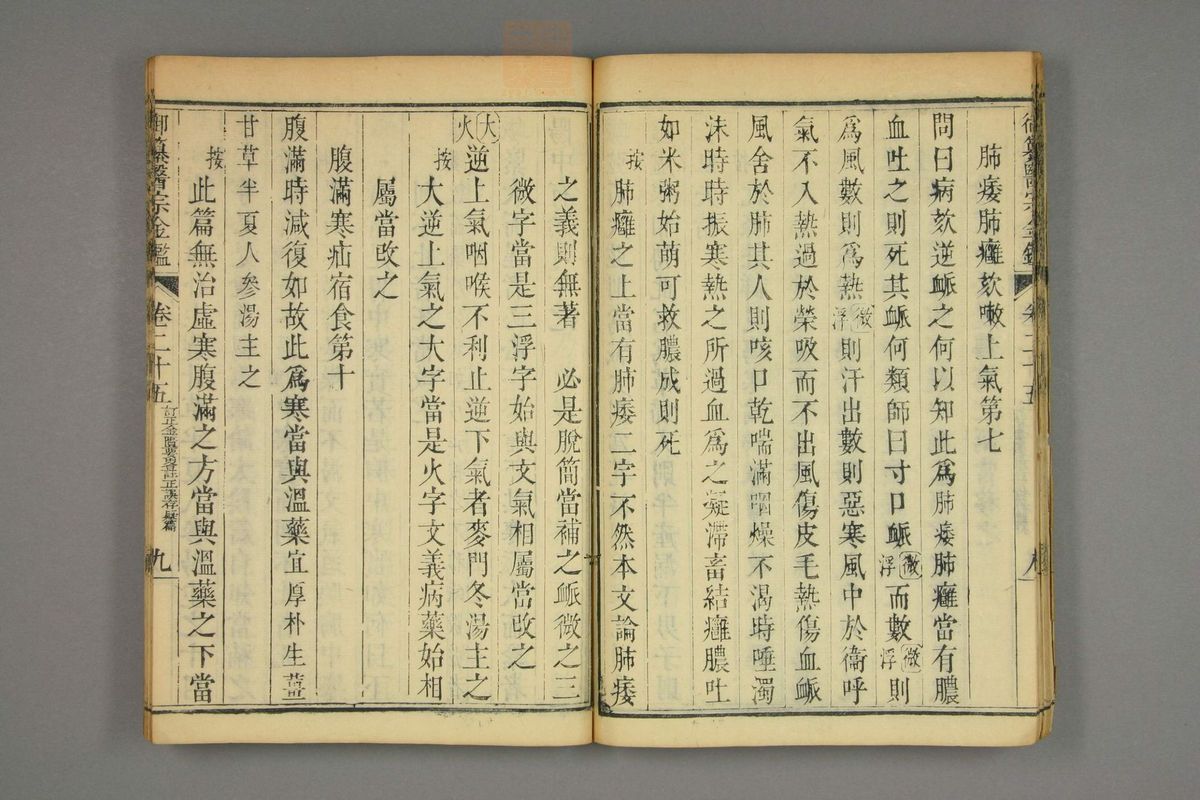 肺痿肺癰欬嗽上氣第七
問曰病欬逆脈之何以知此爲肺痿肺癰當有膿
血吐之則死其脈何類師曰寸口脈微浮而數微浮則
爲風數則爲熱微浮則汗出數則惡寒風中於衞呼
氣不入熱過於榮吸而不出風傷皮毛熱傷血脈
風舍於肺其人則咳口乾喘滿咽燥不渴時唾濁
沫時時振寒熱之所過血爲之凝滯畜結癰膿吐
如米粥始萌可救膿成則死
按肺癰之上當有肺痿二字不然本文論肺痿
之義則無著 必是脫簡當補之脈微之三
微字當是三浮字始與文氣相屬當改之
大火逆上氣咽喉不利止逆下氣者麥門冬湯主之
按大逆上氣之大字當是火字文義病藥始相
屬當改之
腹滿寒疝宿食第十
腹滿時減復如故此爲寒當與溫藥宜厚朴生薑
甘草半夏人參湯主之
按此篇無治虛寒腹滿之方當與溫藥之下當
御纂醫宗金鑑 卷二十五 訂正金匱要畧註正誤存疑篇 九